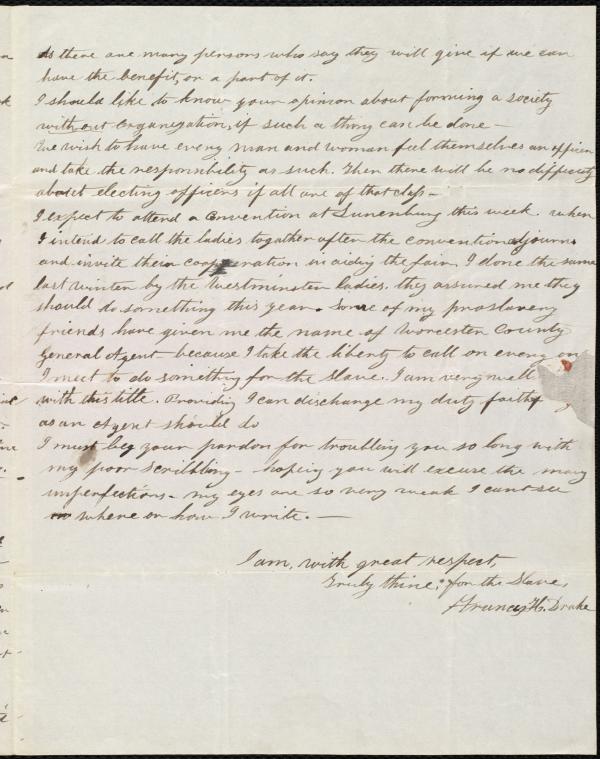 As there are many persons who say they will give if we can
have the benefit, or a part of it.
I should like to know your opinion about forming a society
without organization, if such a thing can be done —
We wish to have every man and woman feel themselves an officer
and take the responsibility as such. Then there will be no difficulty
about electing officers if all are of that class —
I expect to attend a convention at Lunenburg this week. when
I intend to call the ladies together after the convention adjourns
and invite their cooperation in aiding the fair. I done the same
last winter by the Westminster ladies. they assured me they
should do something this year. Some of my proslavery
friends have given me the name of Worcester County
General Agent because I take the liberty to call on every one
I meet to do something for the slave. I am very well
with this title. Providing I can discharge my duty
as an Agent should do
I must beg your pardon for troubling you so long with
my poor scribbling — hoping you will excuse the many
imperfections — my eyes are so very weak I cant see
where or how I write. —
I am, with great respect,
Truly thine, for the Slave,
Frances H. Drake